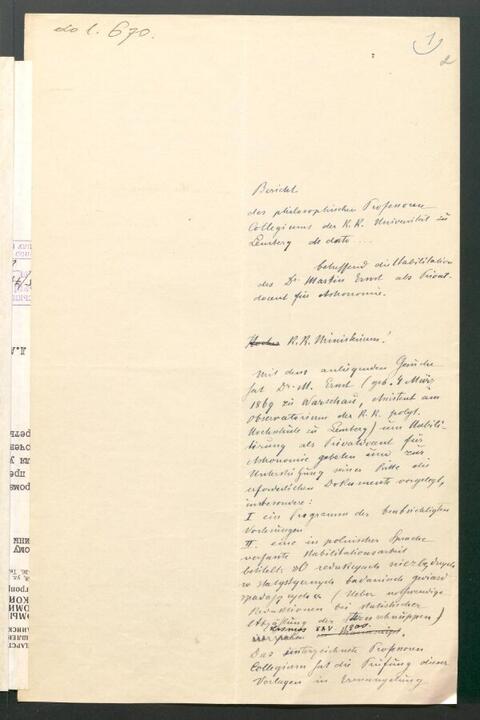 do l. 670.
1
2
Bericht
des philosophischen Professoren
Collegiums der K.K. Universität zu
Lemberg de dato ...
betreffend die Habilitation
des Dr Martin Ernst als Privat-
docent für Astronomie.
Hohes K.K. Ministerium!
Mit dem anliegenden Gesuche
hat Dr. M. Ernst (geb. 4 März
1869 zu Warschau, Assistent am
Observatorium der K.K. polyt.
Hochschule zu Lemberg) um Habili-
tirung als Privatdocent für
Astronomie gebeten und zur
Unterstützung seiner Bitte die
erforderlichen Dokumente vorgelegt,
insbesondere:
I ein Programm der beabsichtigten
Vorlesungen
II. eine in polnischer Sprache
verfasste Habilitationsarbeit
betitelt: "O redukcyach niezbędnych
w statystycznych badaniach gwiazd
spadających" (Ueber notwendige
Reduktionen bei statistischer
Abzählung der Sternschnuppen)
Kosmos XXV
Das unterzeichnete Professoren
Collegium hat die Prüfung dieser
Vorlagen in Ermangelung